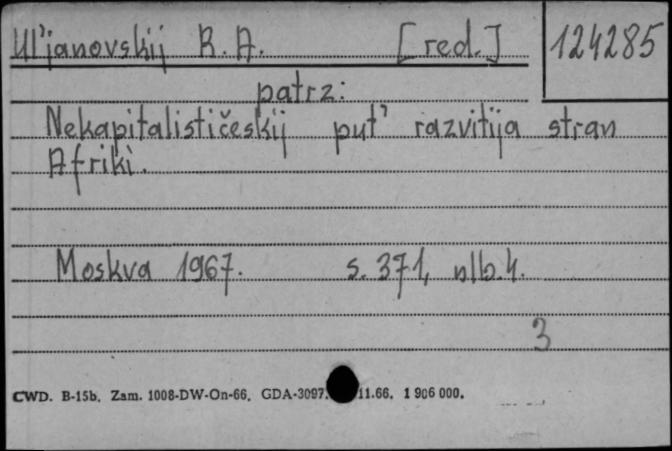 Ul'janovskij R. A. [red.] 124285
patrz:
Nekapitalističeskij put' razvitija stran
Afriki.
Moskva 1967. s. 371, nlb. 4.
3
CWD. B-15b. Zam. 1008-DW-On-66. GDA-3097. 11.66. 1 906 000.